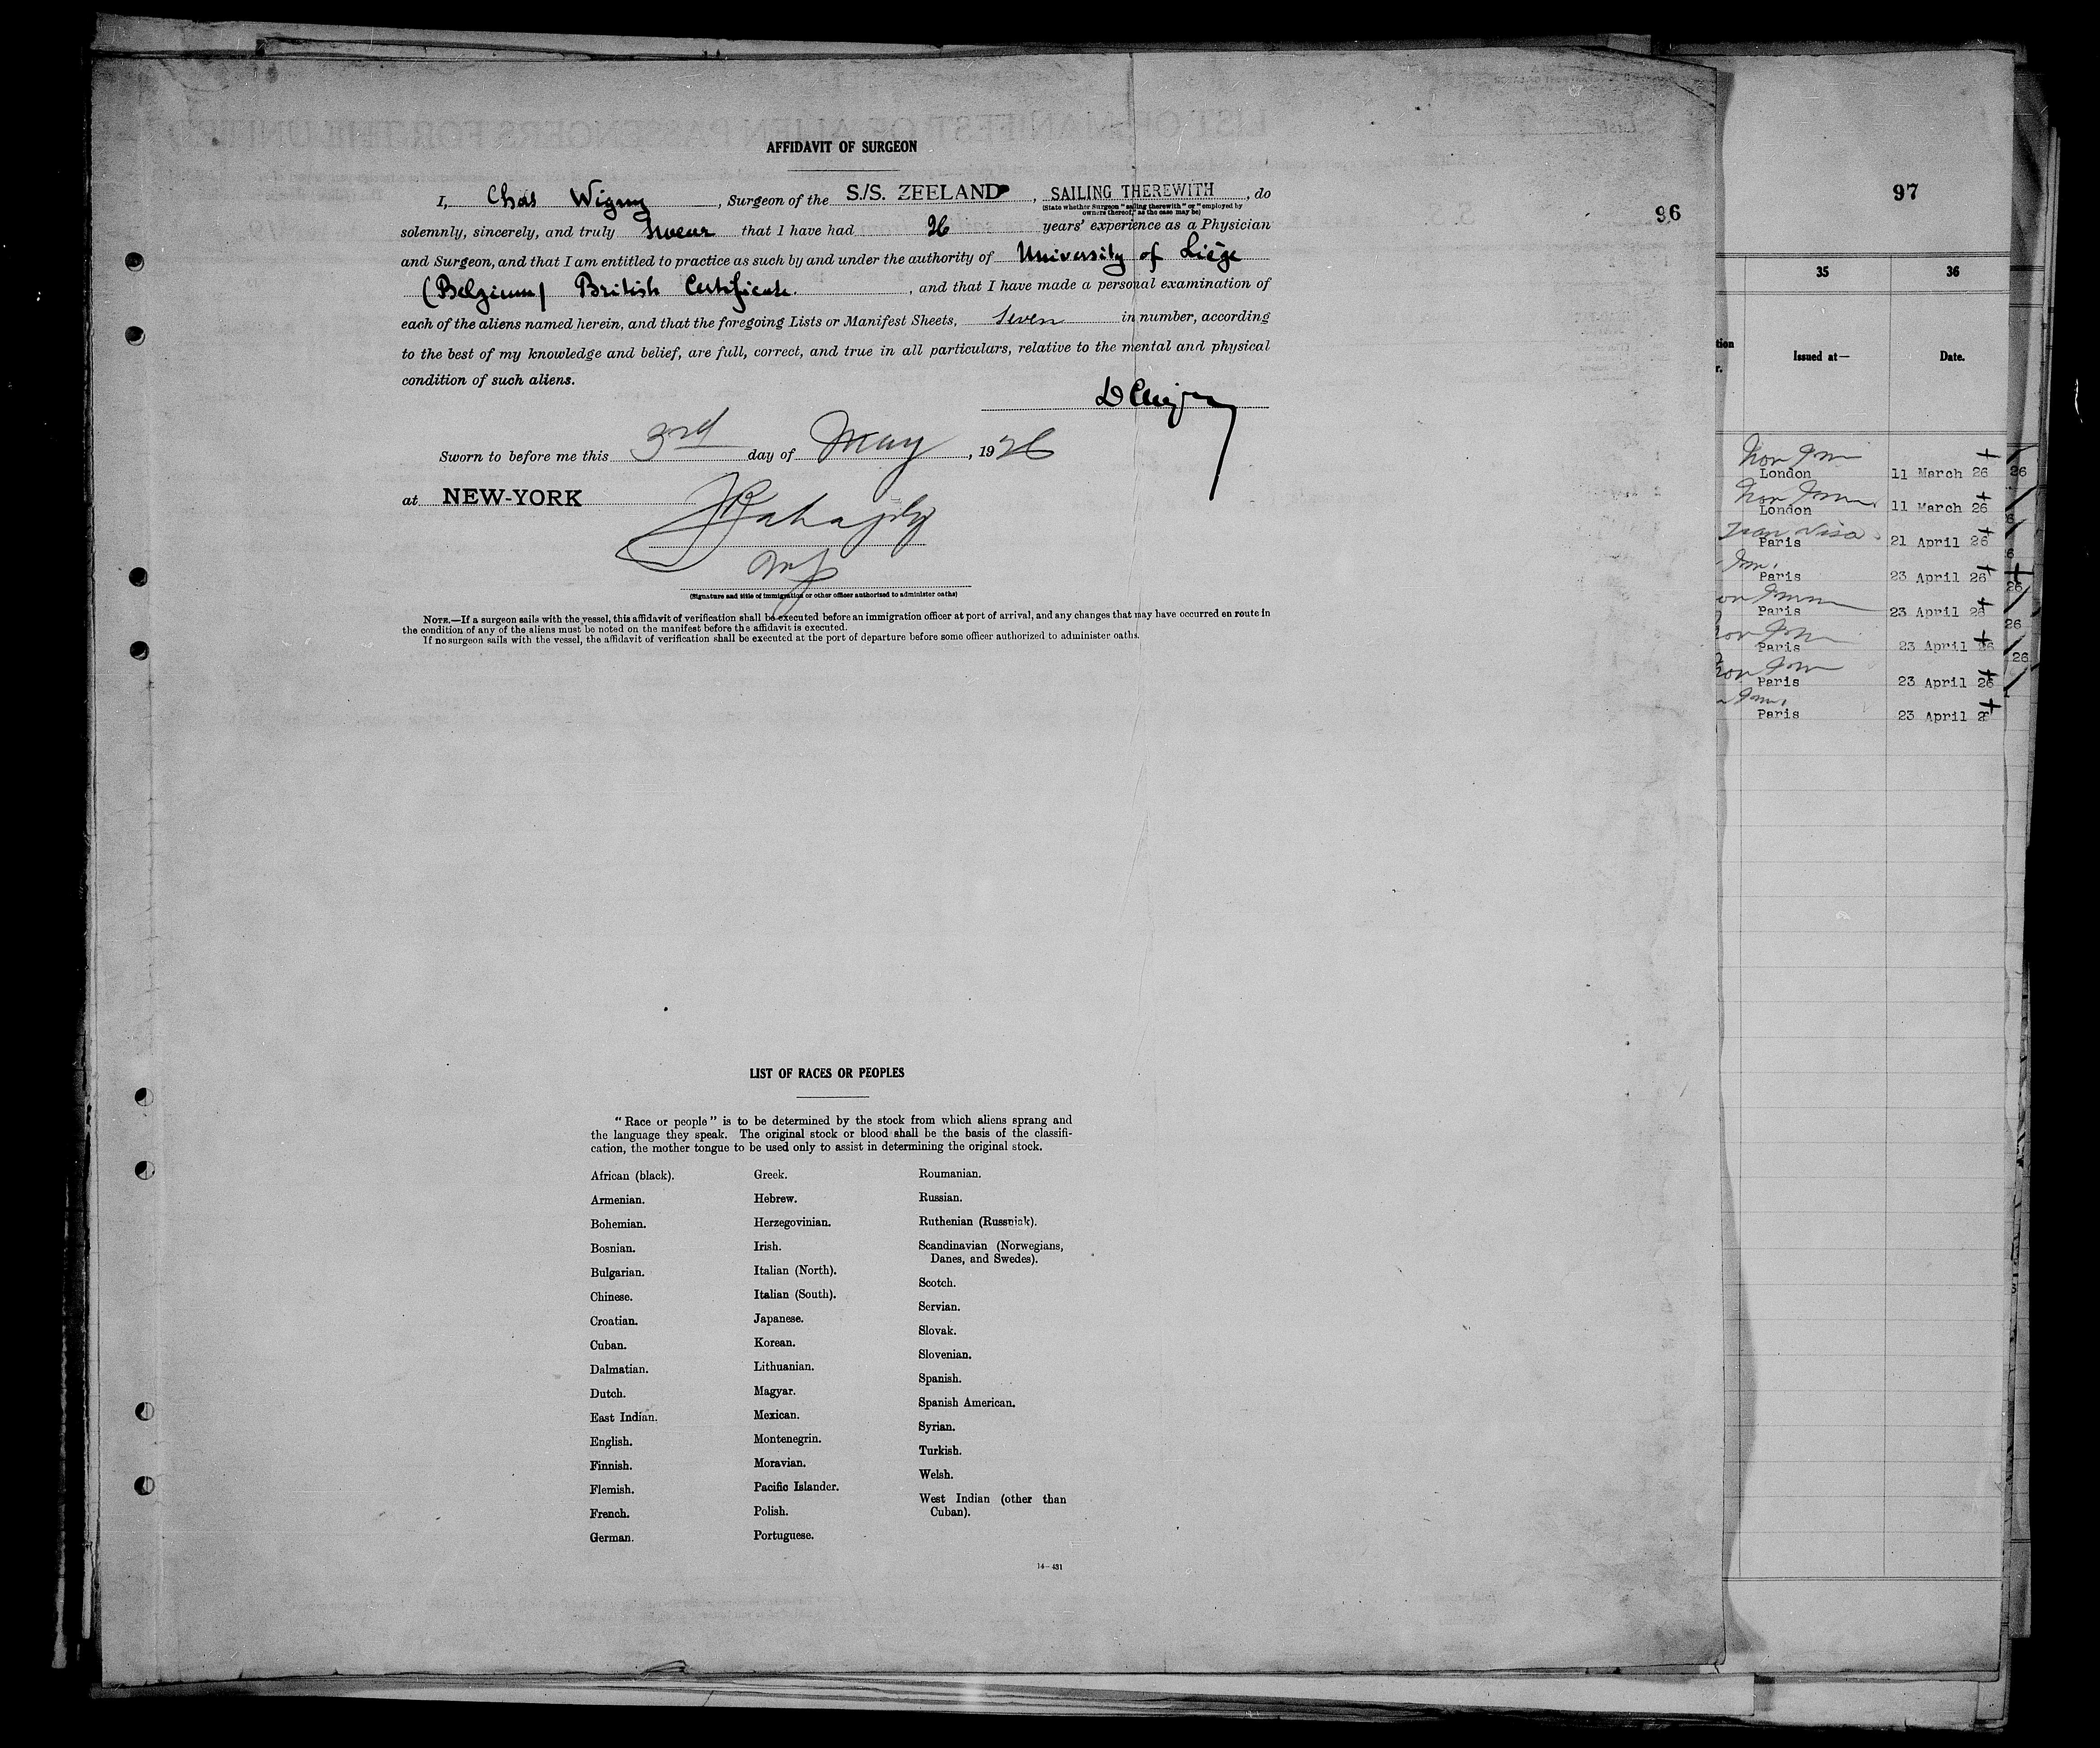 AFFIDAVIT OF SURGEON
I, Chas Wigny, Surgeon of the S./S. ZEELAND, SAILING THEREWITH, do
(State whether Surgeon "sailing therewith" or "employed by
owners thereof," as the case may be)
solemnly, sincerely, and truly swear that I have had 26 years' experience as a Physician
and Surgeon, and that I am entitled to practice as such by and under the authority of University of Liége
(Belgium) British Certificate., and that I have made a personal examination of
each of the aliens named herein, and that the foregoing Lists or Manifest Sheets, seven in number, according
to the best of my knowledge and belief, are full, correct, and true in all particulars, relative to the mental and physical
condition of such aliens.
Sworn to before me this 3rd day of May, 1926
at NEW-YORK
(Signature and title of immigration or other officer authorized to administer oaths)
NOTE.—If a surgeon sails with the vessel, this affidavit of verification shall be executed before an immigration officer at port of arrival, and any changes that may have occurred en route in
the condition of any of the aliens must be noted on the manifest before the affidavit is executed.
If no surgeon sails with the vessel, the affidavit of verification shall be executed at the port of departure before some officer authorized to administer oaths.
LIST OF RACES OR PEOPLES
"Race or people" is to be determined by the stock from which aliens sprang and
the language they speak. The original stock or blood shall be the basis of the classifi-
cation, the mother tongue to be used only to assist in determining the original stock.
African (black).
Armenian.
Bohemian.
Bosnian.
Bulgarian.
Chinese.
Croatian.
Cuban.
Dalmatian.
Dutch.
East Indian.
English.
Finnish.
Flemish.
French.
German.
Greek.
Hebrew.
Herzegovinian.
Irish.
Italian (North).
Italian (South).
Japanese.
Korean.
Lithuanian.
Magyar.
Mexican.
Montenegrin.
Moravian.
Pacific Islander.
Polish.
Portuguese.
Roumanian.
Russian.
Ruthenian (Russniak).
Scandinavian (Norwegians,
Danes, and Swedes).
Scotch.
Servian.
Slovak.
Slovenian.
Spanish.
Spanish American.
Syrian.
Turkish.
Welsh.
West Indian (other than
Cuban).
14—431
96
97
35 36
Issued at— Date.
London 11 March 26
London 11 March 26
Paris 21 April 26
Paris 23 April 26
Paris 23 April 26
Paris 23 April 26
Paris 23 April 26
Paris 23 April 26